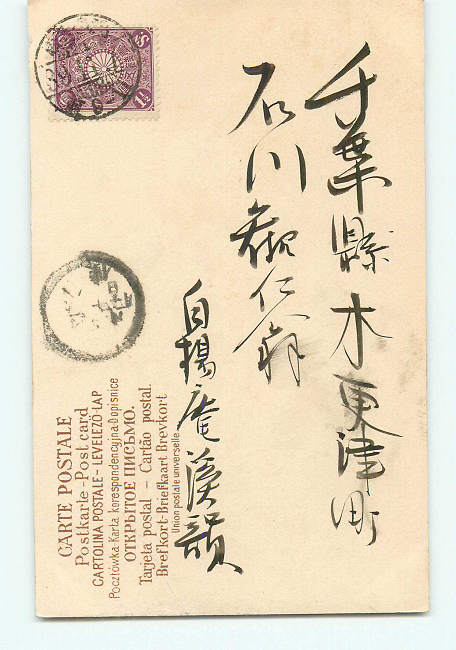 千葉縣木更津町
石川観仁翁
白楊庵渓韻
CARTE POSTALE
Postkarte - Post card
CARTOLINA POSTALE - LEVELEZÖ-LAP
Pocztówka - Karta korespondencyjna - Dopisnice
ОТКРЫТОЕ ПИСЬМО.
Tarjeta postal - Cartão postal.
Brefkort - Briefkaart Brevkort
Union postale universelle